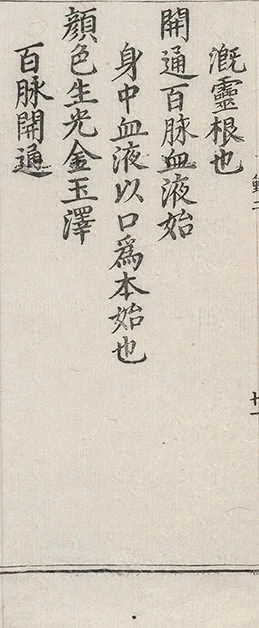 溉靈根也
開通百脉血液始
身中血液以口爲本始也
顏色生光金玉澤
百脉開通